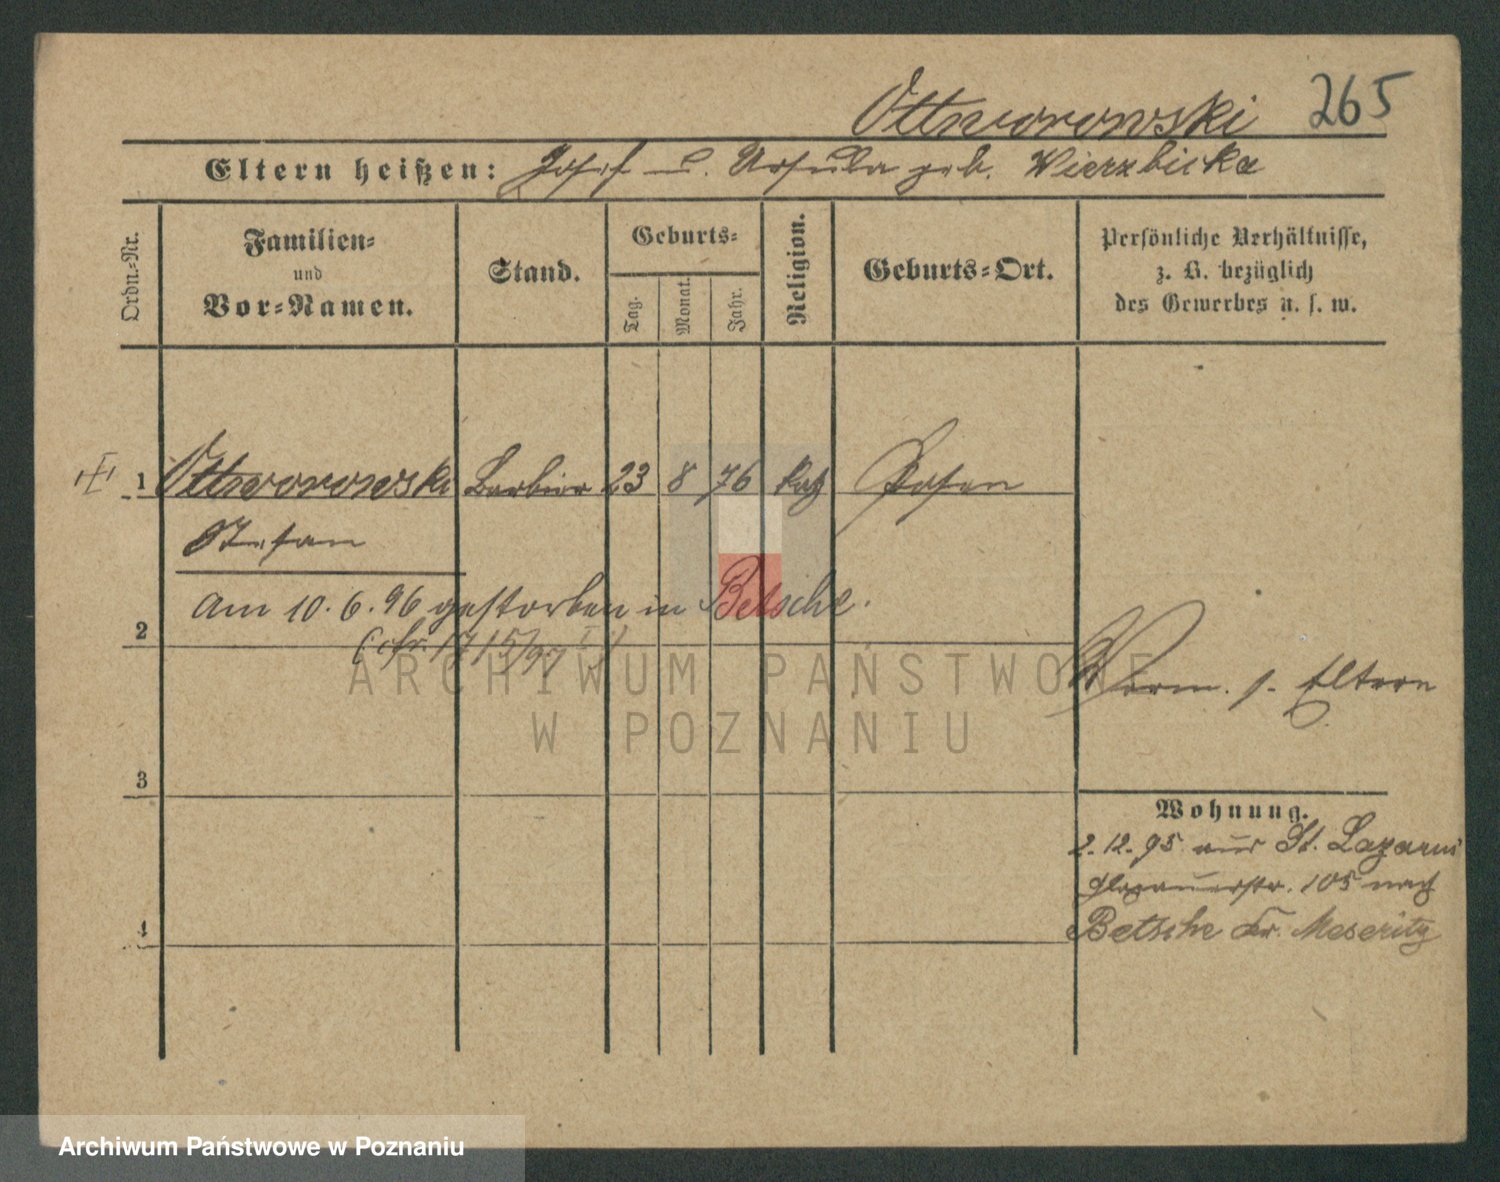 Ottworowski 265
Eltern heißen: Josef u. Ursula geb. Wierzbicka
Ordn.-Nr.
Familien-
und
Vor-Namen.
Stand.
Geburts-
Tag.
Monat.
Jahr.
Religion.
Geburts-Ort.
Persönliche Verhältnisse,
z. B. bezüglich
des Gewerbes u. s. w.
1 Ottworowski Barbier 23 8 76 kath Posen
Stefan
Am 10. 6. 96 gestorben in Betsche.
2
(cfr. 1715/97
Verm. s. Eltern
ARCHIWUM PAŃSTWOWE
W POZNANIU
3
Wohnung.
2. 12. 95 aus St. Lazarus
Glogauerstr. 105 nach
4
Betsche Kr. Meseritz
Archiwum Państwowe w Poznaniu